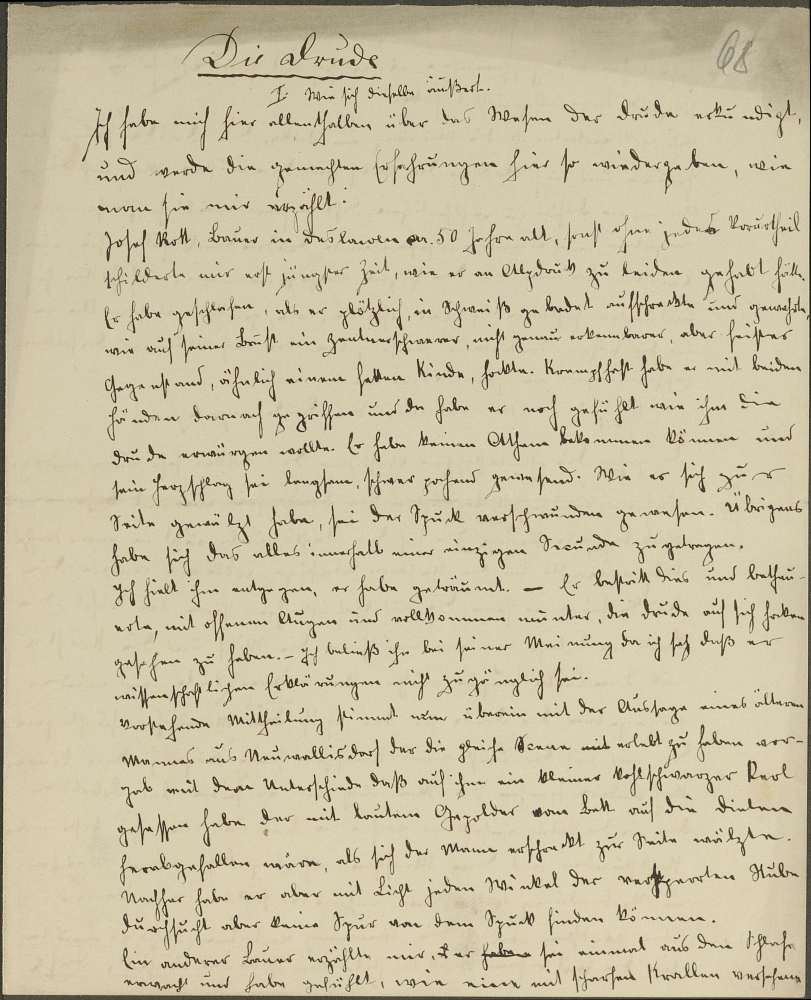 Die Drude
68
I. Wie sich dieselbe äußert.
Ich habe mich hier allenthalben über das Wesen der Drude erkundigt,
und werde die gemachten Erfahrungen hier so wiedergeben, wie
man sie mir erzählt:
Josef Rott, Bauer in 50 Jahre alt, sonst ohne jedes Vorurtheil
schilderte mir erst jüngster Zeit, wie er an Alpdruk zu leiden gehabt hätte.
Er habe geschlafen, als er plötzlich, in Schweiß gebadet aufschreckte und gewahrte,
wie auf seiner Brust ein zentnerschwerer, nicht genau erkennbarer, aber
Gegenstand, ähnlich einem fetten Kinde, hockte. Krampfhaft habe er mit beiden
Händen darnach gegriffen und da habe er noch gefühlt wie ihn die
Drude erwürgen wollte. Er habe keinen Athem bekommen können und
sein Herzschlag sei langsam, schwer pochend gewesend. Wie er sich zur
Seite gewälzt habe, sei der Spuk verschwunden gewesen. Übrigens
habe sich das alles innerhalb einer einzigen Secunde zugetragen.
Ich hielt ihm entgegen, er habe geträumt. — Er bestritt dies und betheu-
erte, mit offenen Augen und vollkommen munter, die Drude auf sich hocken
gesehen zu haben. – Ich beließ ihn bei seiner Meinung da ich sah daß er
wissenschaftlichen Erklärungen nicht zugänglich sei.
Vorstehende Mittheilung stimmt nun überein mit der Aussage eines älteren
Mannes aus Neuwallisdorf der die gleiche Scene miterlebt zu haben vor-
gab mit dem Unterschiede daß auf ihm ein kleiner kohlschwarzer Kerl
gesessen habe der mit lautem Gepolder vom Bett auf die Dielen
herabgefallen wäre, als sich der Mann erschreckt zur Seite wälzte.
Nachher habe er aber mit Licht jeden Winkel der versperrten Stube
durchsucht aber keine Spur von dem Spuk finden können.
Ein anderer Bauer erzählte mir, er habe sei einmal aus dem Schlafe
erwacht und habe gefühlt, wie eine mit scharfen Krallen versehene